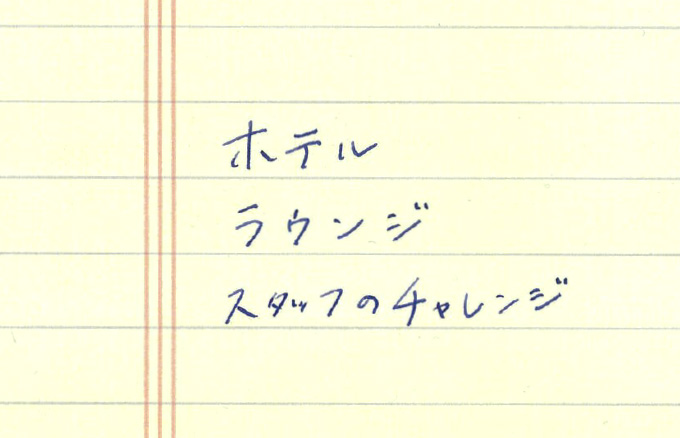 ホテル
ラウンジ
スタッフのチャレンジ